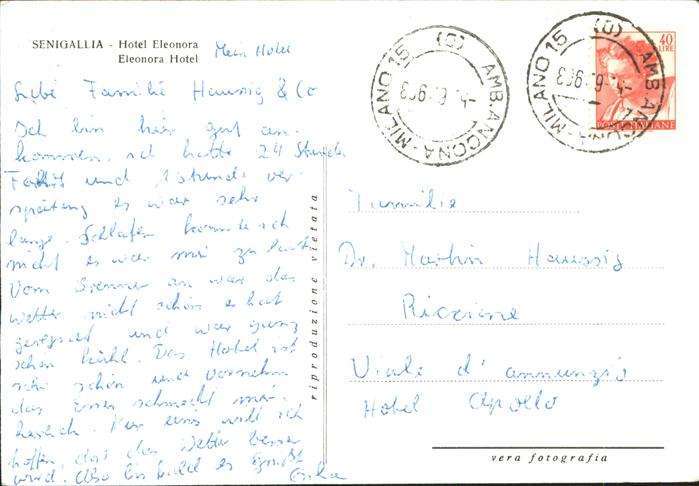 SENIGALLIA - Hotel Eleonora
Eleonora Hotel
Mein Hotel
Liebe Familie Haussig & Co
Ich bin hier gut an
kommen. ich hatte 24 Stunde
Fahrt und 1 stunde ver
spätung es war sehr
lange. Schlafen konnte ich
nicht es war mir zu laut
Vom Brenner an war das
wetter nicht schön es hat
geregnet und war ganz
schön kühl. Das Hotel ist
sehr schön und vornehm
das essen schmeckt mir
herlich. Nur eins will ich
hoffen, das das Wetter besser
wird. Also bis bald es grüßt
riproduzione vietata
AMB. ANCONA-MILANO 15 (0)
AMB. ANCONA-MILANO 15 (0)
40
LIRE
POSTE ITALIANE
Familie
Dr. Martin Haussig
Riccione
Viale d'annunzio
Hotel Apollo
vera fotografia